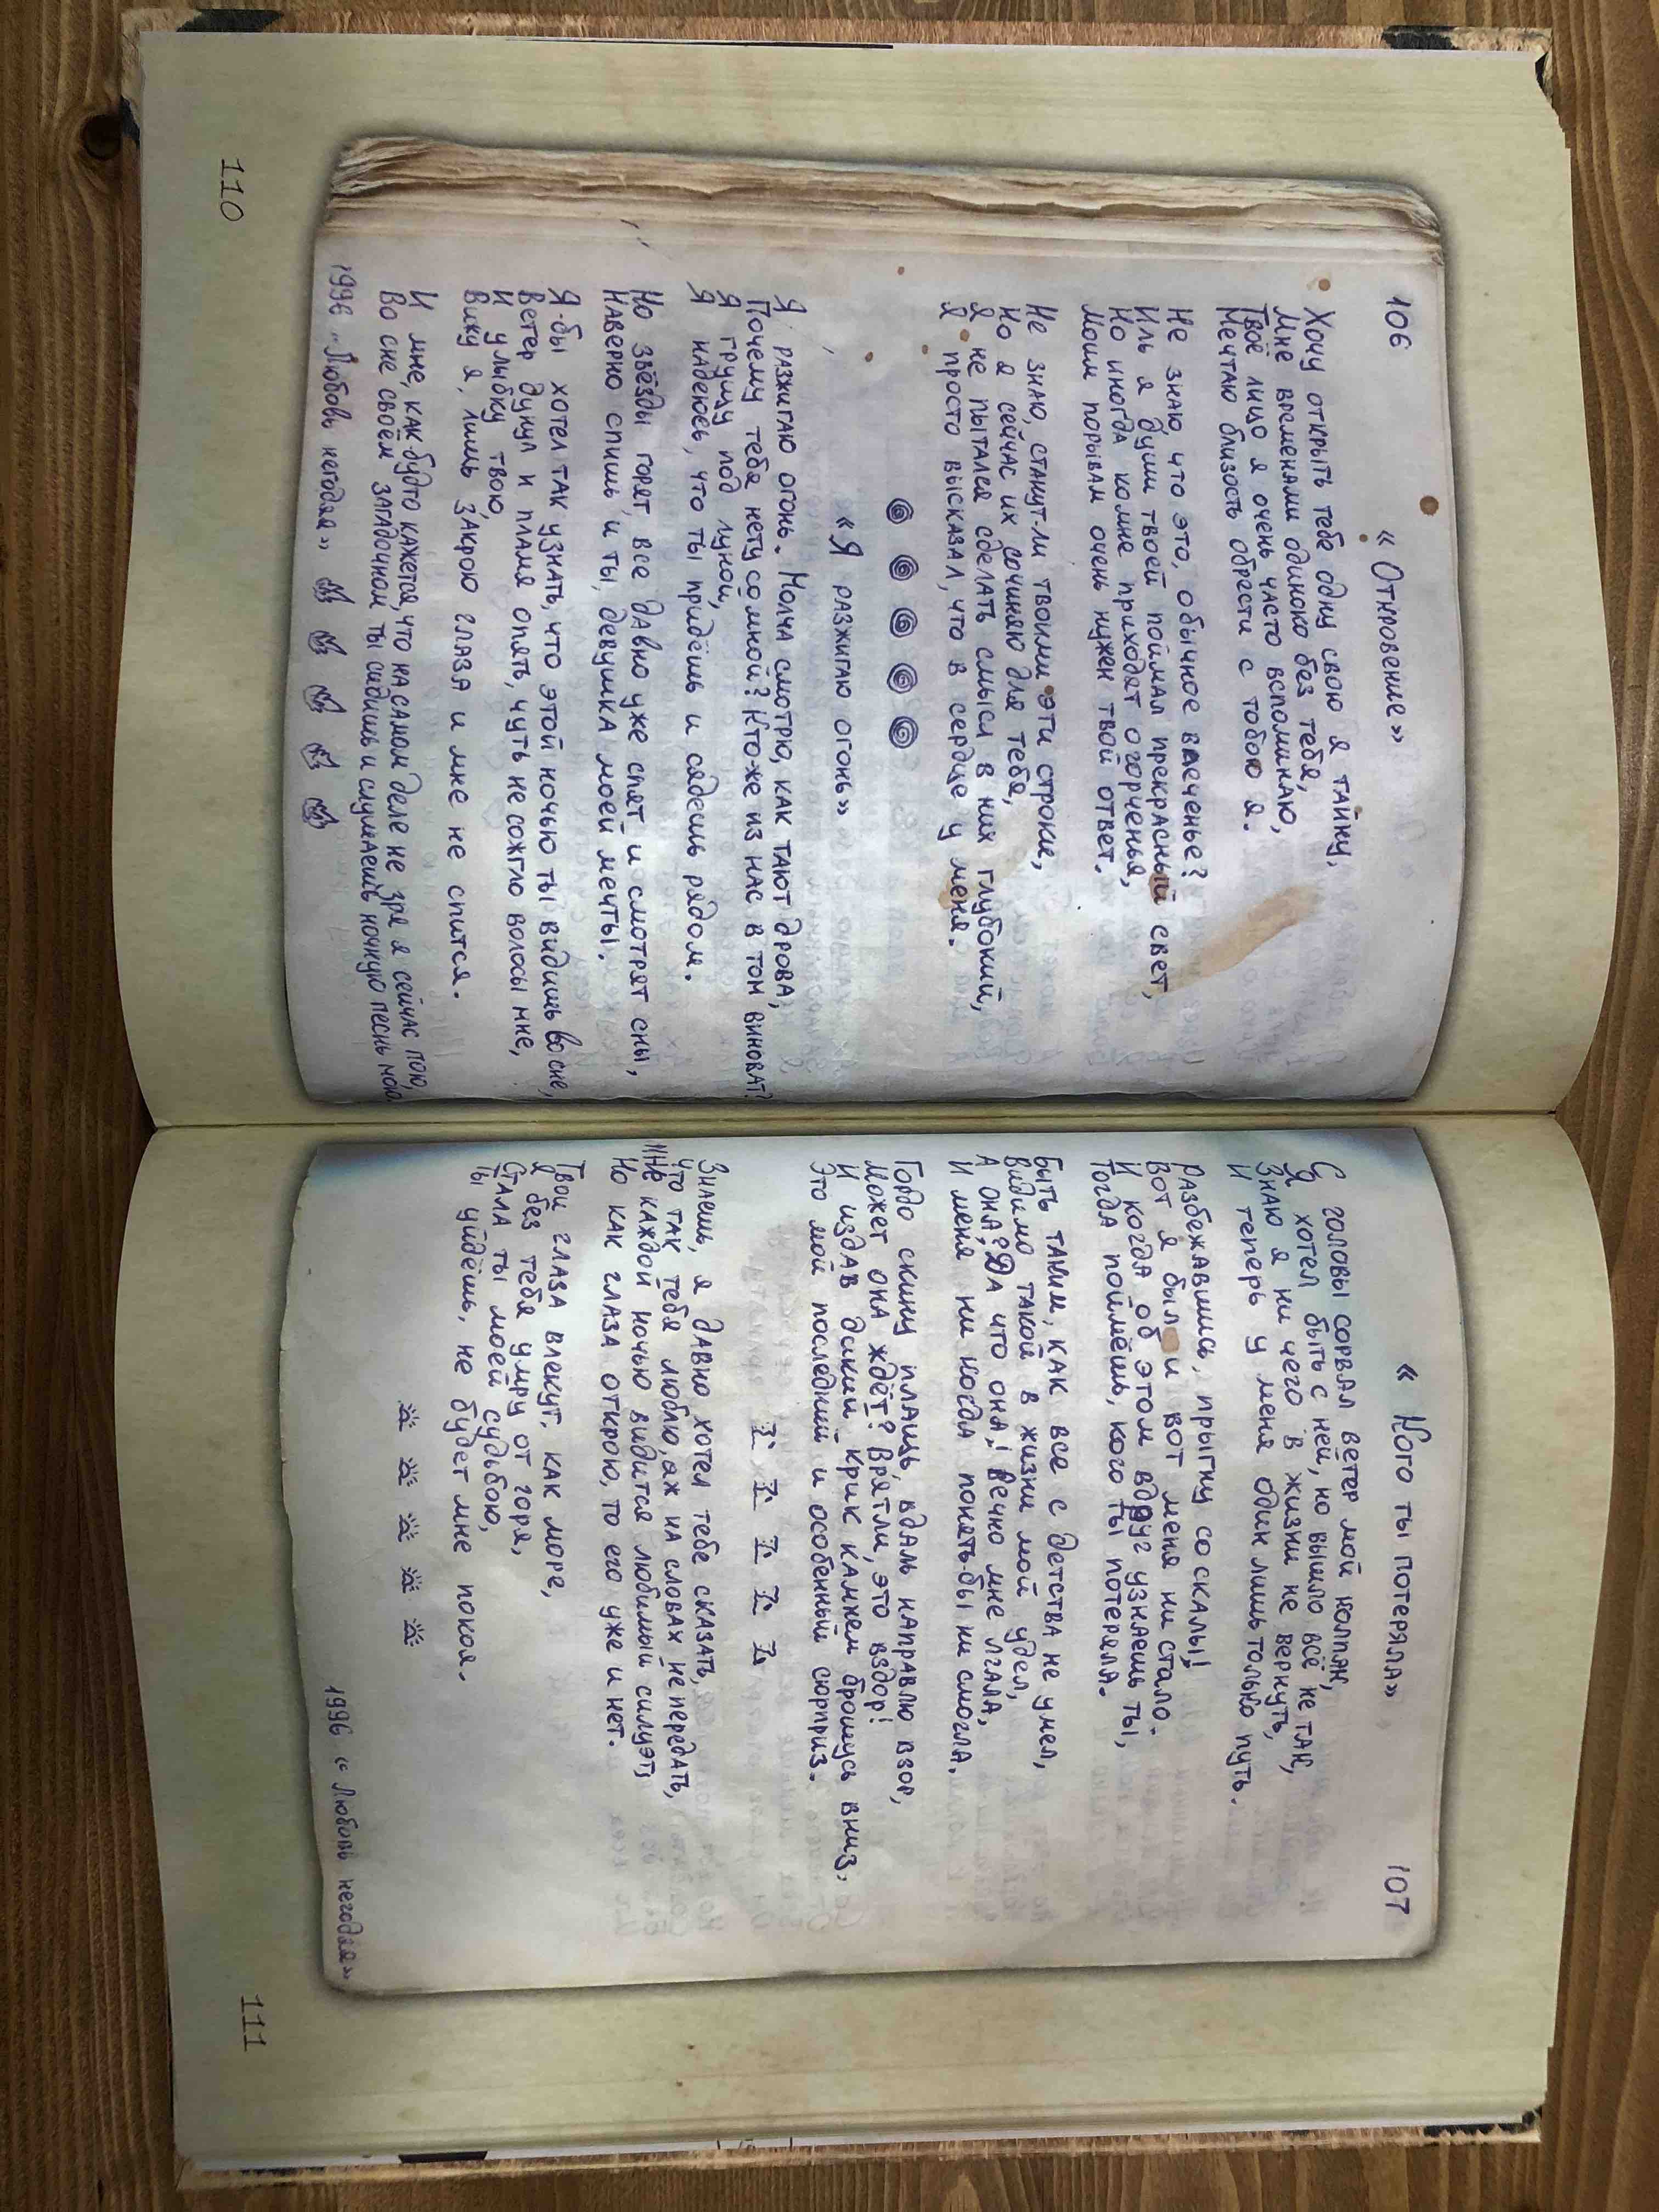 106
«Откровение»
Хочу открыть тебе одну свою я тайну,
Мне временами одиноко без тебя,
Твоё лицо я очень часто вспоминаю,
Мечтаю близость обрести с тобою я.
Не знаю, что это, обычное влеченье?
Иль я души твоей поймал прекрасный свет,
Но иногда комне приходят огорченья,
Моим порывам очень нужен твой ответ.
Не знаю, станут-ли твоими эти строки,
Но я сейчас их сочиняю для тебя,
Я не пытался сделать смысл в них глубокий,
Я просто высказал, что в сердце у меня.
«Я разжигаю огонь»
Я разжигаю огонь. Молча смотрю, как тают дрова,
Почему тебя нету сомной? Кто-же из нас в том виноват?
Я грущу под луной,
Я надеюсь, что ты придёшь и сядешь рядом.
Но звёзды горят, все давно уже спят и смотрят сны,
Наверно спишь и ты, девушка моей мечты.
Я-бы хотел так узнать, что этой ночью ты видишь во сне,
Ветер дунул и пламя опять, чуть не сожгло волосы мне,
И улыбку твою,
Вижу я, лишь закрою глаза и мне не спится.
И мне, как-будто кажется, что на самом деле не зря я сейчас пою,
Во сне своём загадочном ты сидишь и слушаешь ночную песнь мою.
1996 «Любовь негодяя»
110
«Кого ты потеряла»
107
С головы сорвал ветер мой колпак,
Я хотел быть с ней, но вышло всё не так,
Знаю я ни чего в жизни не вернуть,
И теперь у меня один лишь только путь.
Разбежавшись, прыгну со скалы!
Вот я был и вот меня ни стало.
И когда об этом вдруг узнаешь ты,
Тогда поймёшь, кого ты потеряла.
Быть таким, как все с детства не умел,
Видимо такой в жизни мой удел,
А она? Да что она! Вечно мне лгала,
И меня ни когда понять-бы ни смогла.
Гордо скину плащь, вдаль направлю взор,
Может она ждёт? Врятли, это вздор!
И издав дикий крик камнем брошусь вниз,
Это мой последний и особенный сюрприз.
Знаешь, я давно хотел тебе сказать,
Что так тебя люблю, аж на словах не передать,
Мне каждой ночью видится любимый силуэт,
Но как глаза открою, то его уже и нет.
Твои глаза влекут, как море,
Я без тебя умру от горя,
Стала ты моей судьбою,
Ты уйдёшь, не будет мне покоя.
1996 «Любовь негодяя»
111